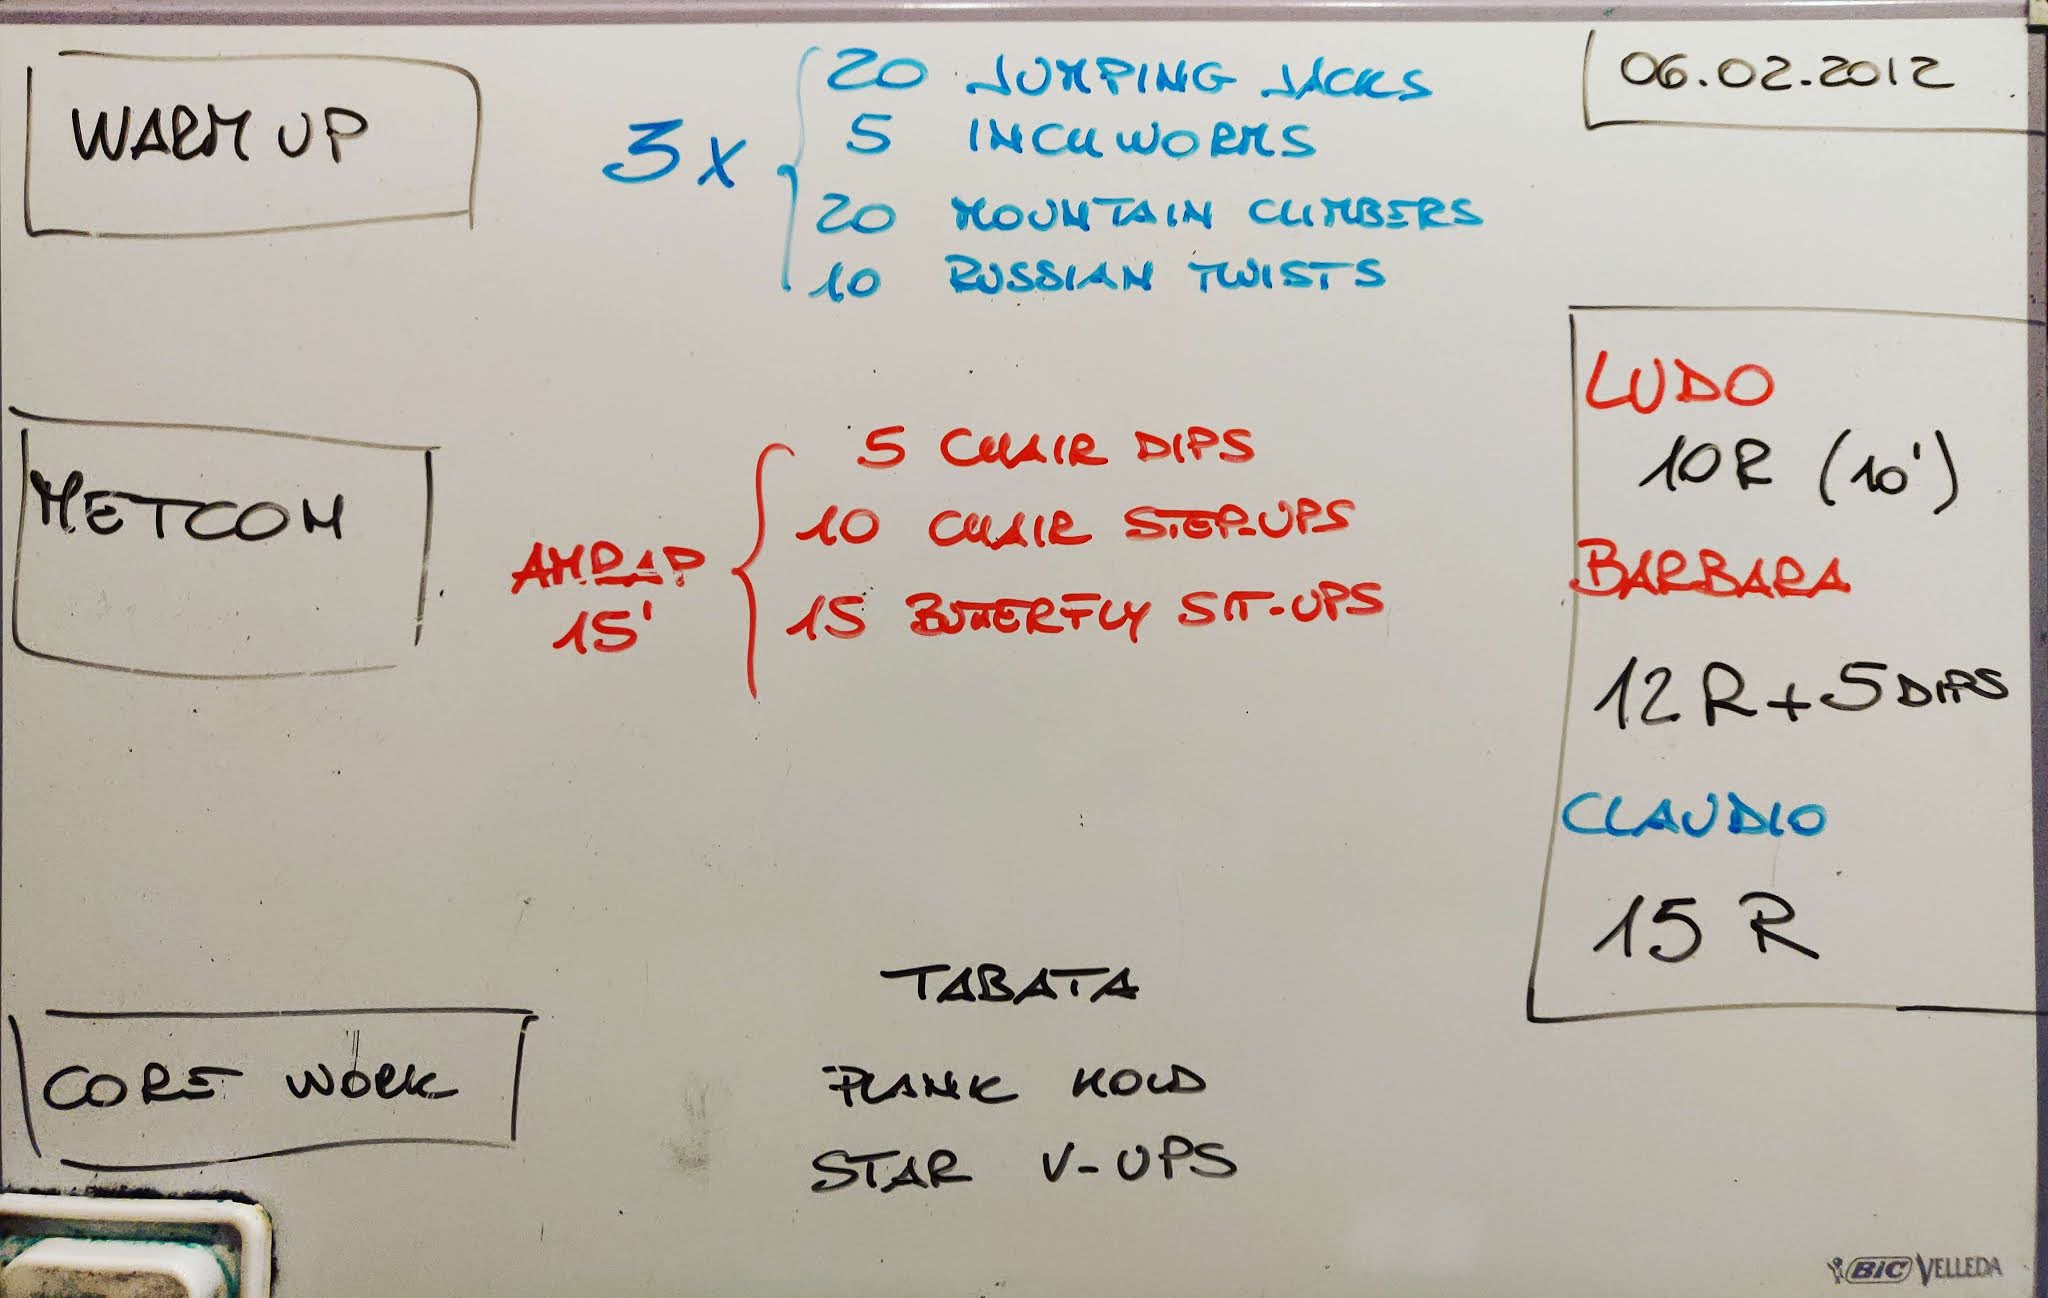 WARM UP
3x
20 JUMPING JACKS
5 INCHWORMS
20 MOUNTAIN CLIMBERS
10 RUSSIAN TWISTS
06.02.2012
METCOM
AMRAP
15'
5 CHAIR DIPS
10 CHAIR STEP-UPS
15 BUTTERFLY SIT-UPS
LUDO
10R (10')
BARBARA
12R+5 DIPS
CLAUDIO
15 R
CORE WORK
TABATA
PLANK HOLD
STAR V-UPS
BIC VELLEDA